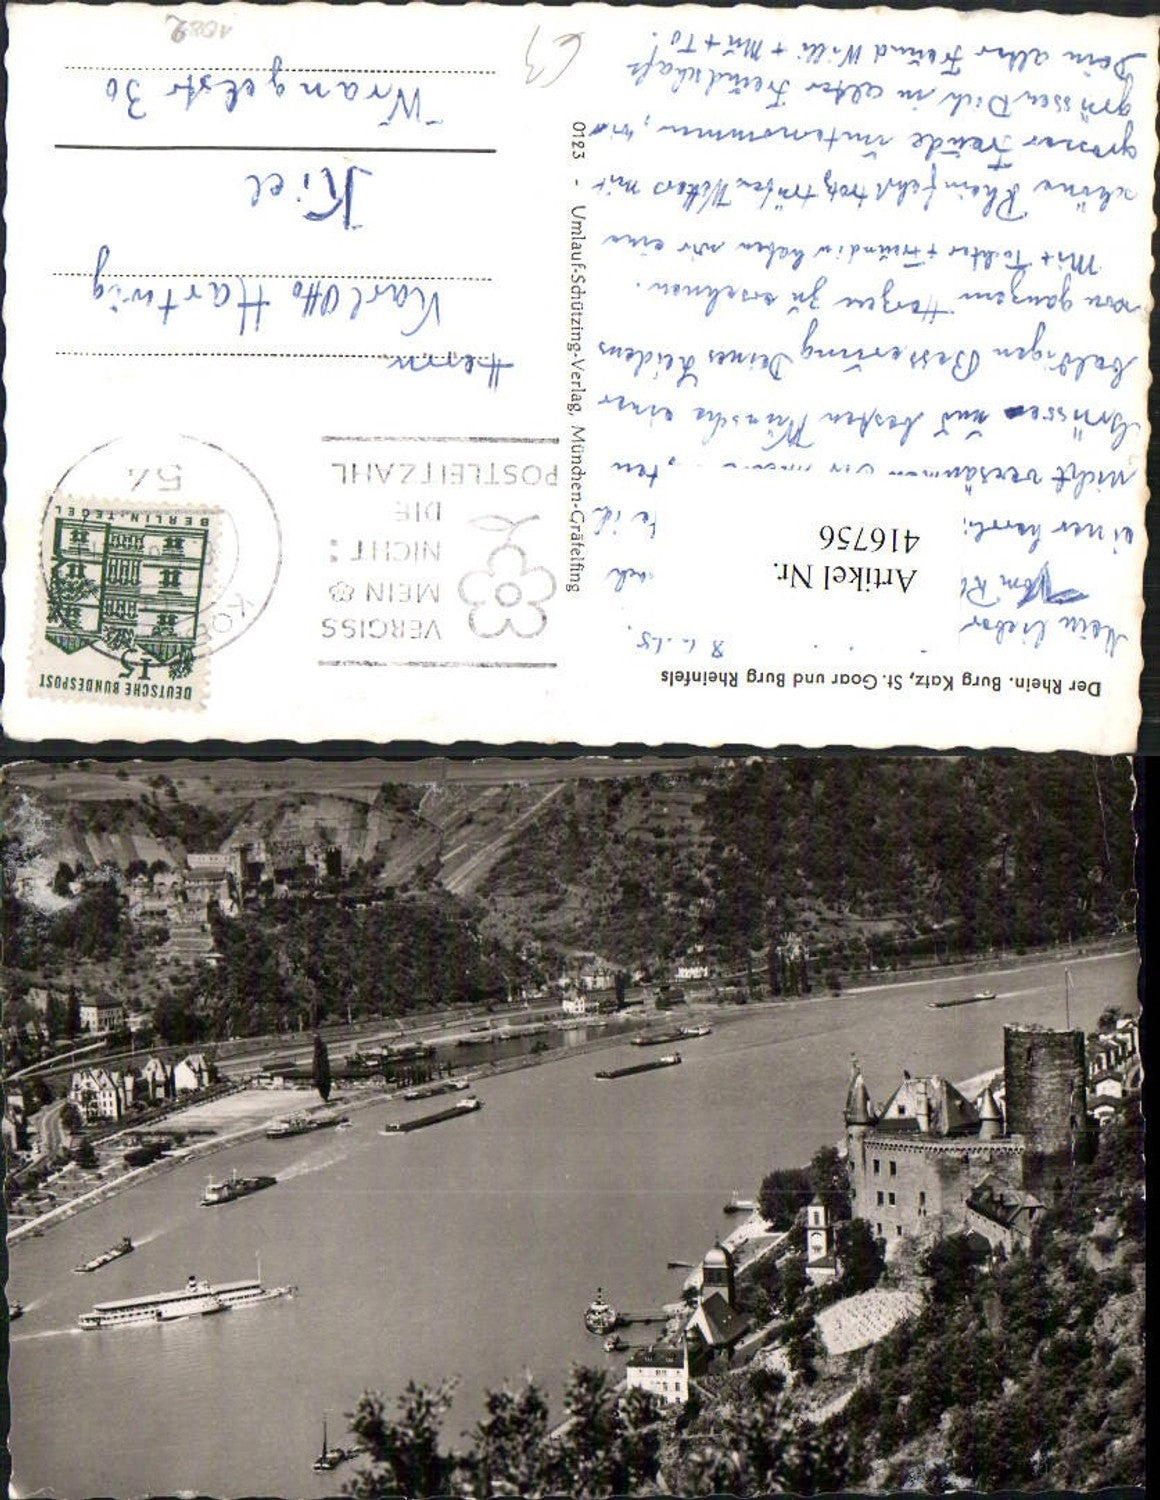 Der Rhein. Burg Katz, St. Goar und Burg Rheinfels
Mein lieber
Vom
einer
nicht versäumen Dir
Grüsse und besten Wünsche einer
baldigen Besserung Deines Leidens
von ganzem Herzen zu
Mit Tochter + Freundin haben wir eine
schöne Rheinfahrt trotz trüben Wetters mit
grosser Freude unternommen, wir
grüssen Dich in alter Freundschaft
Dein alter Freund Willi + Mu + To!
Artikel Nr.
416756
0123 - Umlauf-Schützing-Verlag, München-Gräfelfing
VERGISS
MEIN
NICHT:
DIE
POSTLEITZAHL
54
DEUTSCHE BUNDESPOST
15
BERLIN-TEGEL
Herrn
Karl Otto Hartwig
Kiel
Wrangelstr 30